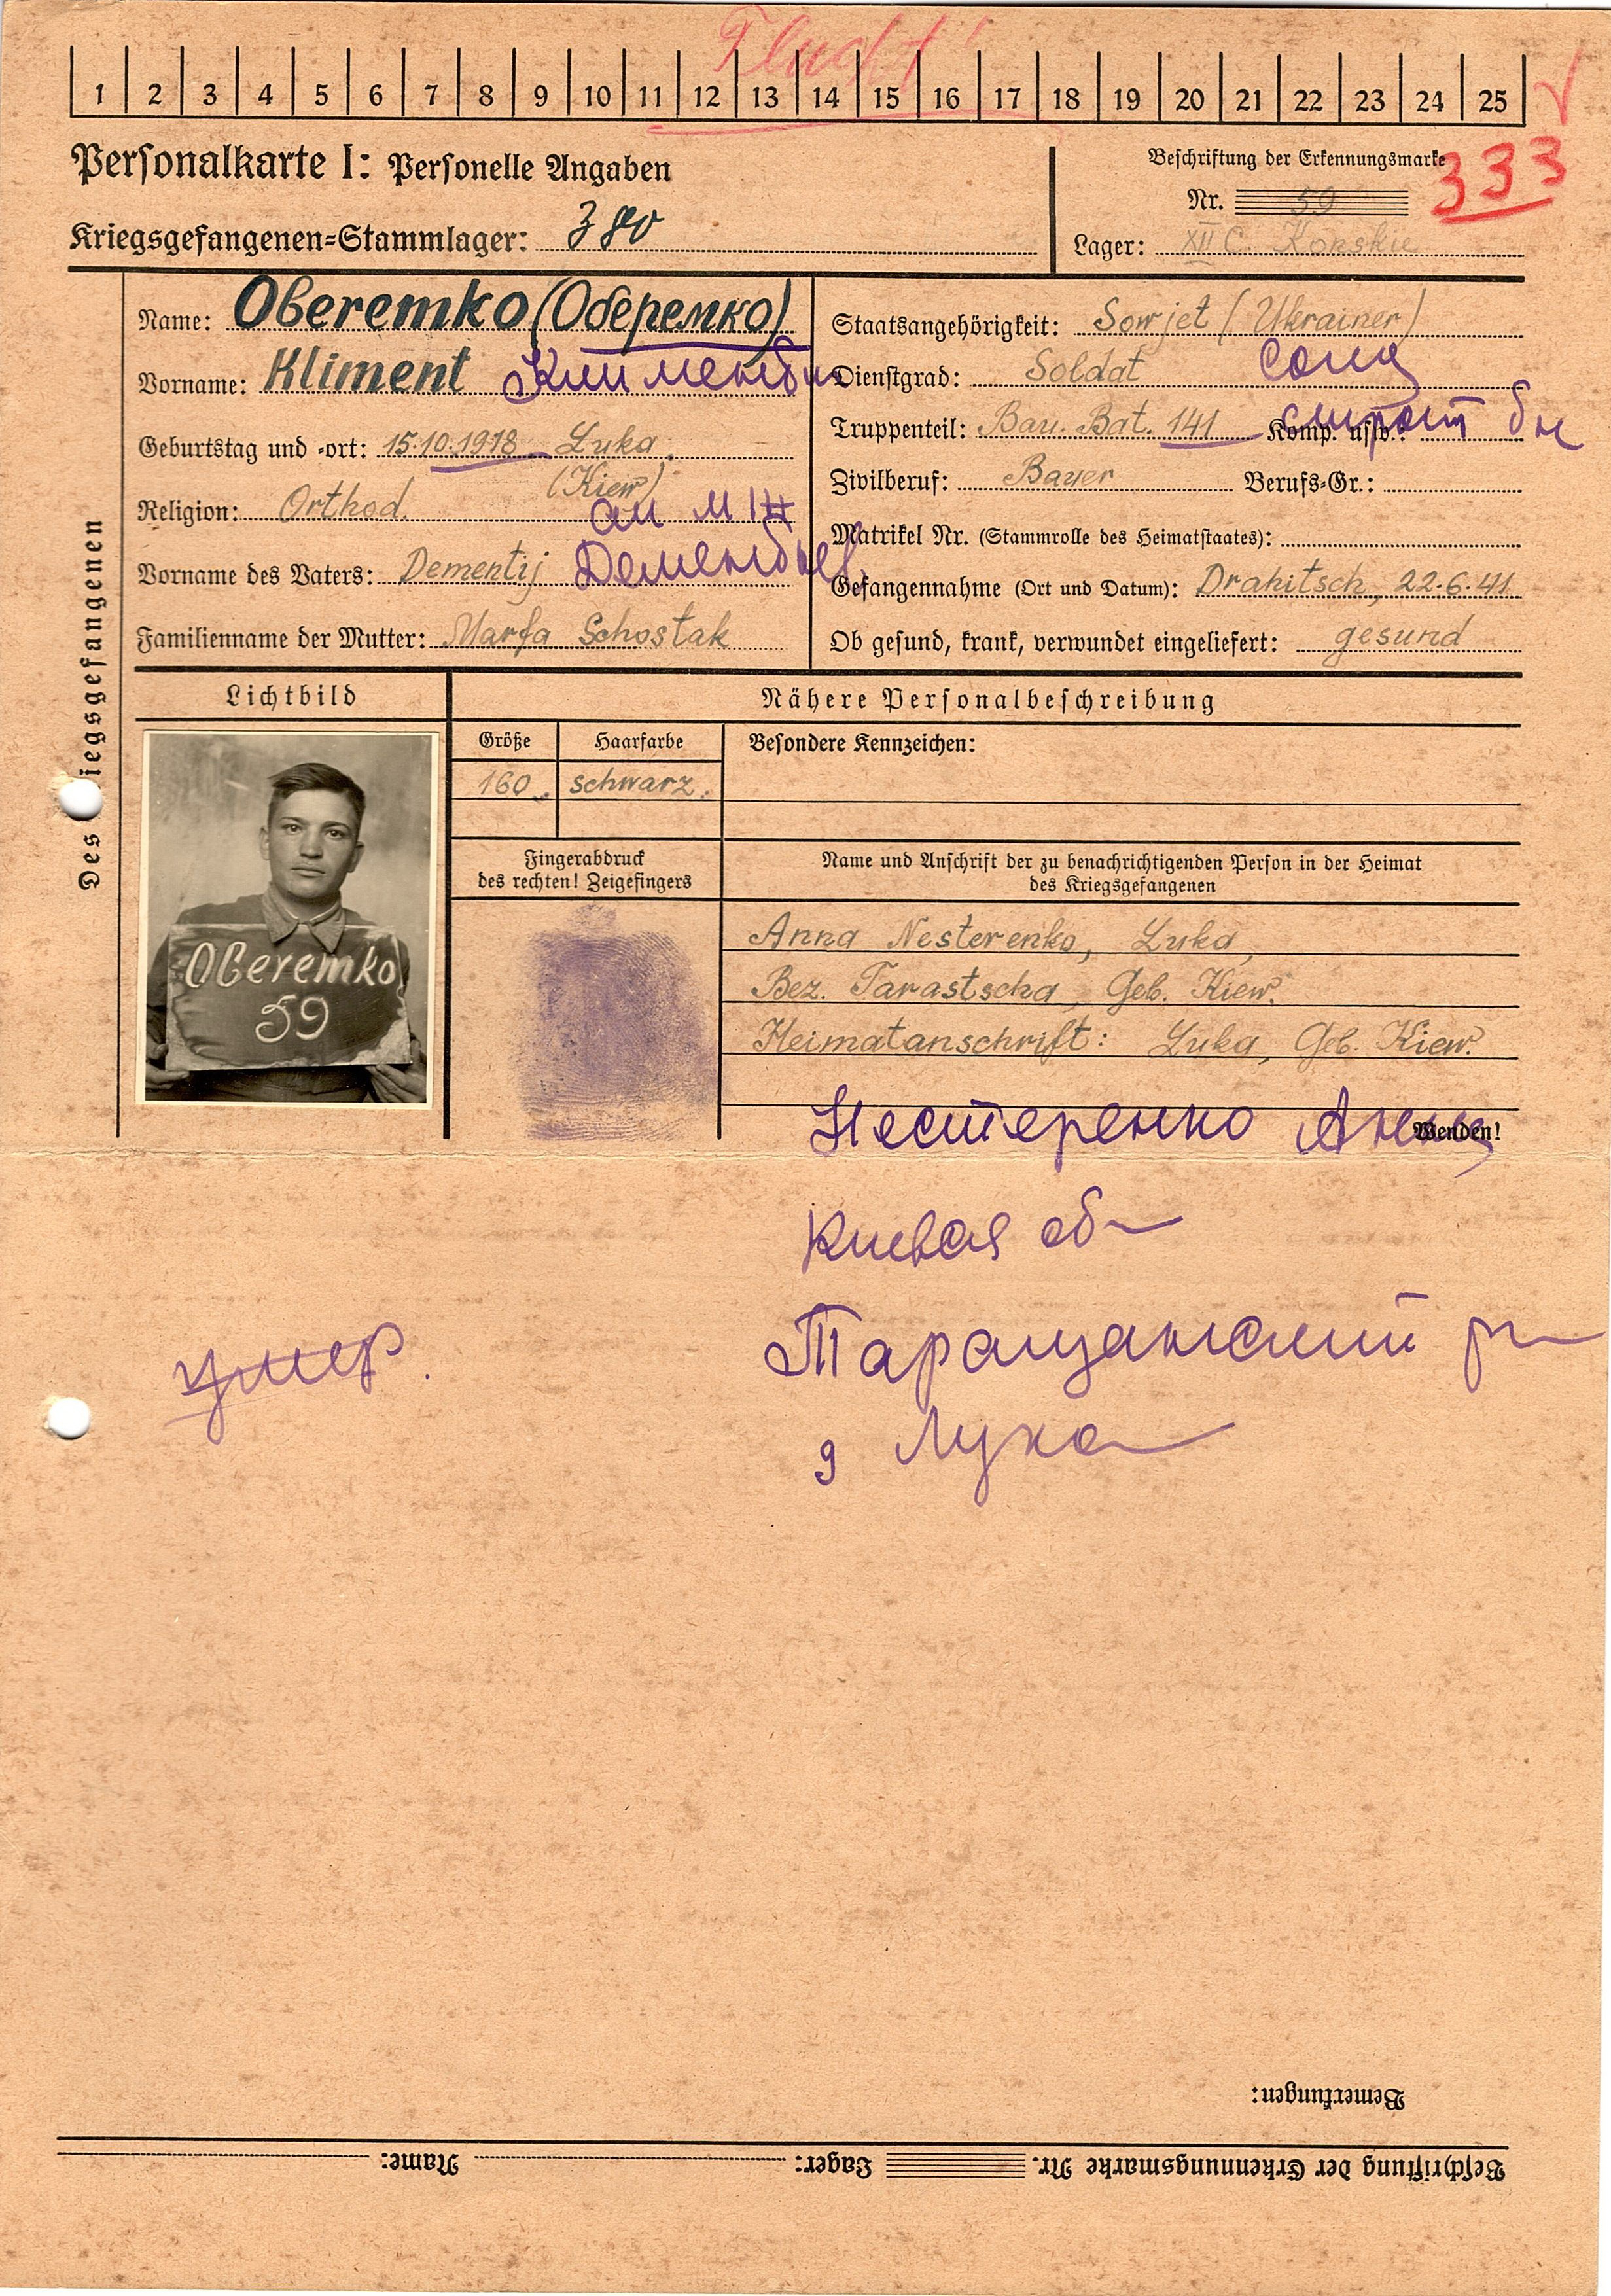 Flucht!
1 2 3 4 5 6 7 8 9 10 11 12 13 14 15 16 17 18 19 20 21 22 23 24 25
Personalkarte I: Personelle Angaben
Kriegsgefangenen=Stammlager:
Beschriftung der Erkennungsmarke
333
Nr. 59
Lager: XII C. Konskie
Des iegsgefangenen
Name: Oberemko (Оберемко)
Vorname: Kliment Климентий
Geburtstag und -ort: 15.10.1918 Luka
(Kiew)
Religion: Orthod.
Vorname des Vaters: Dementij
Familienname der Mutter: Marfa Schostak
Staatsangehörigkeit: Sowjet (Ukrainer)
Dienstgrad: Soldat солд
Truppenteil: Bau. Bat. 141 Komp. usw.: строит бн
Zivilberuf: Bauer Berufs=Gr.:
Matrikel Nr. (Stammrolle des Heimatstaates):
Gefangennahme (Ort und Datum): Drahitsch, 22.6.41
Ob gesund, krank, verwundet eingeliefert: gesund
Lichtbild
Nähere Personalbeschreibung
Größe Haarfarbe Besondere Kennzeichen:
160 schwarz.
Fingerabdruck
des rechten! Zeigefingers
Name und Anschrift der zu benachrichtigenden Person in der Heimat
des Kriegsgefangenen
Oberemko
59
Anna Nesterenko, Luka,
Bez. Tarastscha, Geb. Kiew.
Heimatanschrift: Luka, Geb. Kiew.
Wenden!
Нестеренко Анна
Киевая об
Таращанский р
д Лука
умер.
Bemerkungen:
Beschriftung der Erkennungsmarke Nr. Lager: Name: